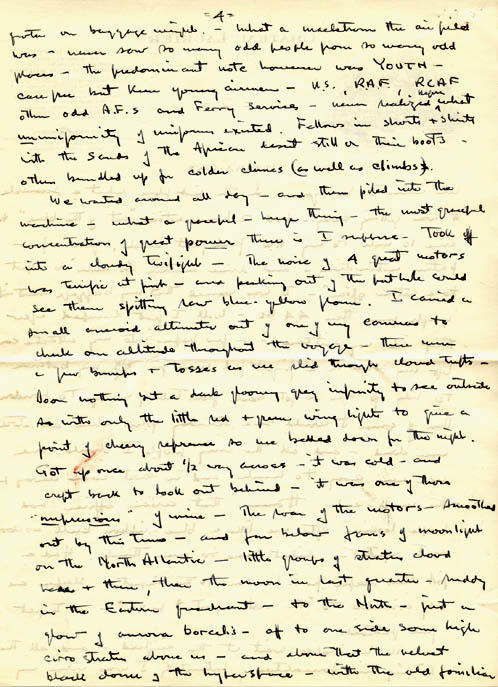 =4=
on baggage weights - what a maelstrom the airfield
was - never saw so many odd people from so many odd
places - the predominant note however was YOUTH -
care free but keen young airmen - U.S., RAF, RCAF
other odd A.F.s and Ferry Services - never realized what
ununiformity of uniforms existed. Fellows in shorts + shirts
with the sands of the African desert still on their boots -
others bundled up for colder climes (as well as climbs).
We waited around all day - and then piled into the
machine - what a graceful - huge thing - the most graceful
concentration of great power there is I suppose. Took off
into a cloudy twilight - The noise of 4 great motors
was terrific at first - and peeking out of the port hole could
see them spitting raw blue-yellow flame. I carried a
small aneroid altimeter out of one of my cameras to
check our altitude throughout the voyage - there were
a few bumps + tosses as we slid through cloud tufts -
Soon nothing but a dark gloomy grey infinity to see outside
so with only the little red + green wing lights to give a
point of cheery reference so we bedded down for the night.
Got up once about 1/2 way across - it was cold - and
crept back to look out behind - it was one of those
"impressions" of mine - The roar of the motors - smoothed
out by this time - and far below of moonlight
on the North Atlantic - little groups of stratus cloud
+ there, then the moon in last quarter - ruddy
in the Eastern quadrant - to the North - just a
glow of aurora borealis - off to one side some high
cirro stratus above us - and above that the velvet
black dome of the hyperspace - with the old familiar